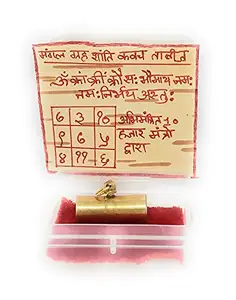 मंगल ग्रह शांति कवच ताबीज
ॐ क्रां क्रीं क्रौं सः भौमाय नमः
नमः निर्भय अस्तु:
८ ३ १०
९ ७ ५
४ ११ ६
अभिमंत्रित १०
हजार मंत्रो
द्वारा